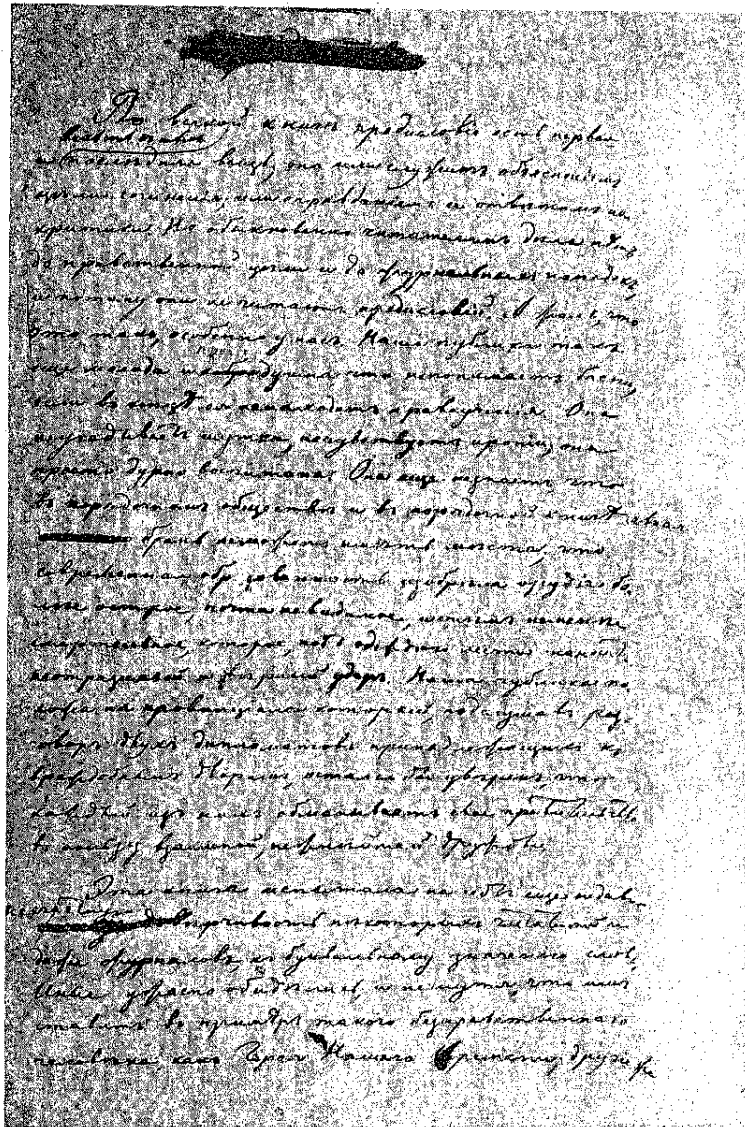 Во всякой книгѣ предисловіе есть первая
и вмѣстѣ съ тѣмъ
и послѣдняя вещь; оно или служитъ объясненіемъ
цѣли сочиненія, или оправданіемъ и отвѣтомъ на
критики. Но обыкновенно читателямъ дѣла нѣтъ
до нравственной цѣли и до журнальныхъ нападокъ,
и потому они не читаютъ предисловій. А жаль, что
это такъ, особенно у насъ. Наша публика такъ
еще молода и простодушна, что не понимаетъ басни,
если въ концѣ ея не находитъ нравоученія. Она
не угадываетъ шутки, не чувствуетъ ироніи; она
просто дурно воспитана. Она еще не знаетъ, что
въ порядочномъ обществѣ и въ порядочной книгѣ явная
брань не можетъ имѣть мѣста; что
современная образованность изобрѣла орудіе бо-
лѣе острое, почти невидимое, и тѣмъ не менѣе
смертельное, которое, подъ одеждою лести, наноситъ
неотразимый и вѣрный ударъ. Наша публика по-
хожа на провинціала, который, подслушавъ раз-
говоръ двухъ дипломатовъ, принадлежащихъ къ
враждебнымъ дворамъ, остался бы увѣренъ, что
каждый изъ нихъ обманываетъ свое правительство,
въ пользу взаимной, нѣжнѣйшей дружбы.
Эта книга испытала на себѣ еще недав-
но несчастную
довѣрчивость нѣкоторыхъ читателей и
даже журналовъ къ буквальному значенію словъ.
Иные ужасно обидѣлись, и не шутя, что имъ
ставятъ въ примѣръ такого безнравственнаго
человѣка, какъ Герой Нашего Времени; другіе же